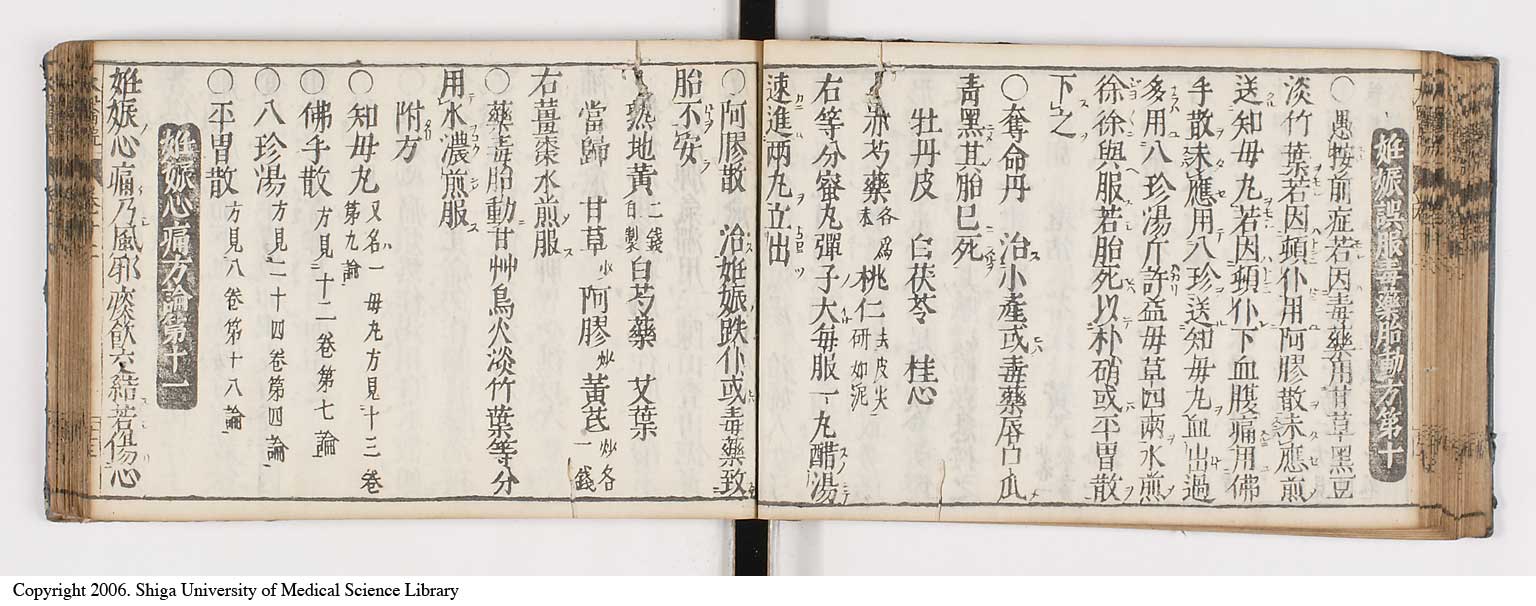 妊娠誤服毒藥胎動方第十
○愚按前症若因毒藥用甘草黑豆
淡竹葉若因頓仆用阿膠散未應煎
送知母丸若因頓仆下血腹痛用佛
手散未應用八珍送知母丸血出過
多用八珍湯斤許益母草四兩水煎
徐徐與服若胎死以朴硝或平胃散
下之
○奪命丹 治小產或毒藥唇口爪
青黑其胎已死
牡丹皮 白茯苓 桂心
赤芍藥 各爲末 桃仁 去皮尖研如泥
右等分蜜丸彈子大每服一丸醋湯
速進兩丸立出
○阿膠散 治妊娠跌仆或毒藥致
胎不安
熟地黃 二錢自製 白芍藥 艾葉
當歸 甘草 阿膠 炒 黃芪 炒各一錢
右薑棗水煎服
○藥毒胎動甘艸烏火淡竹葉等分
用水濃煎服
附方
○知母丸 又名一母丸方見十三卷第九論
○佛手散 方見十二卷第七論
○八珍湯 方見二十四卷第四論
○平胃散 方見八卷第十八論
妊娠心痛方論第十一
妊娠心痛乃風邪痰飲交結若傷心
Copyright 2006. Shiga University of Medical Science Library